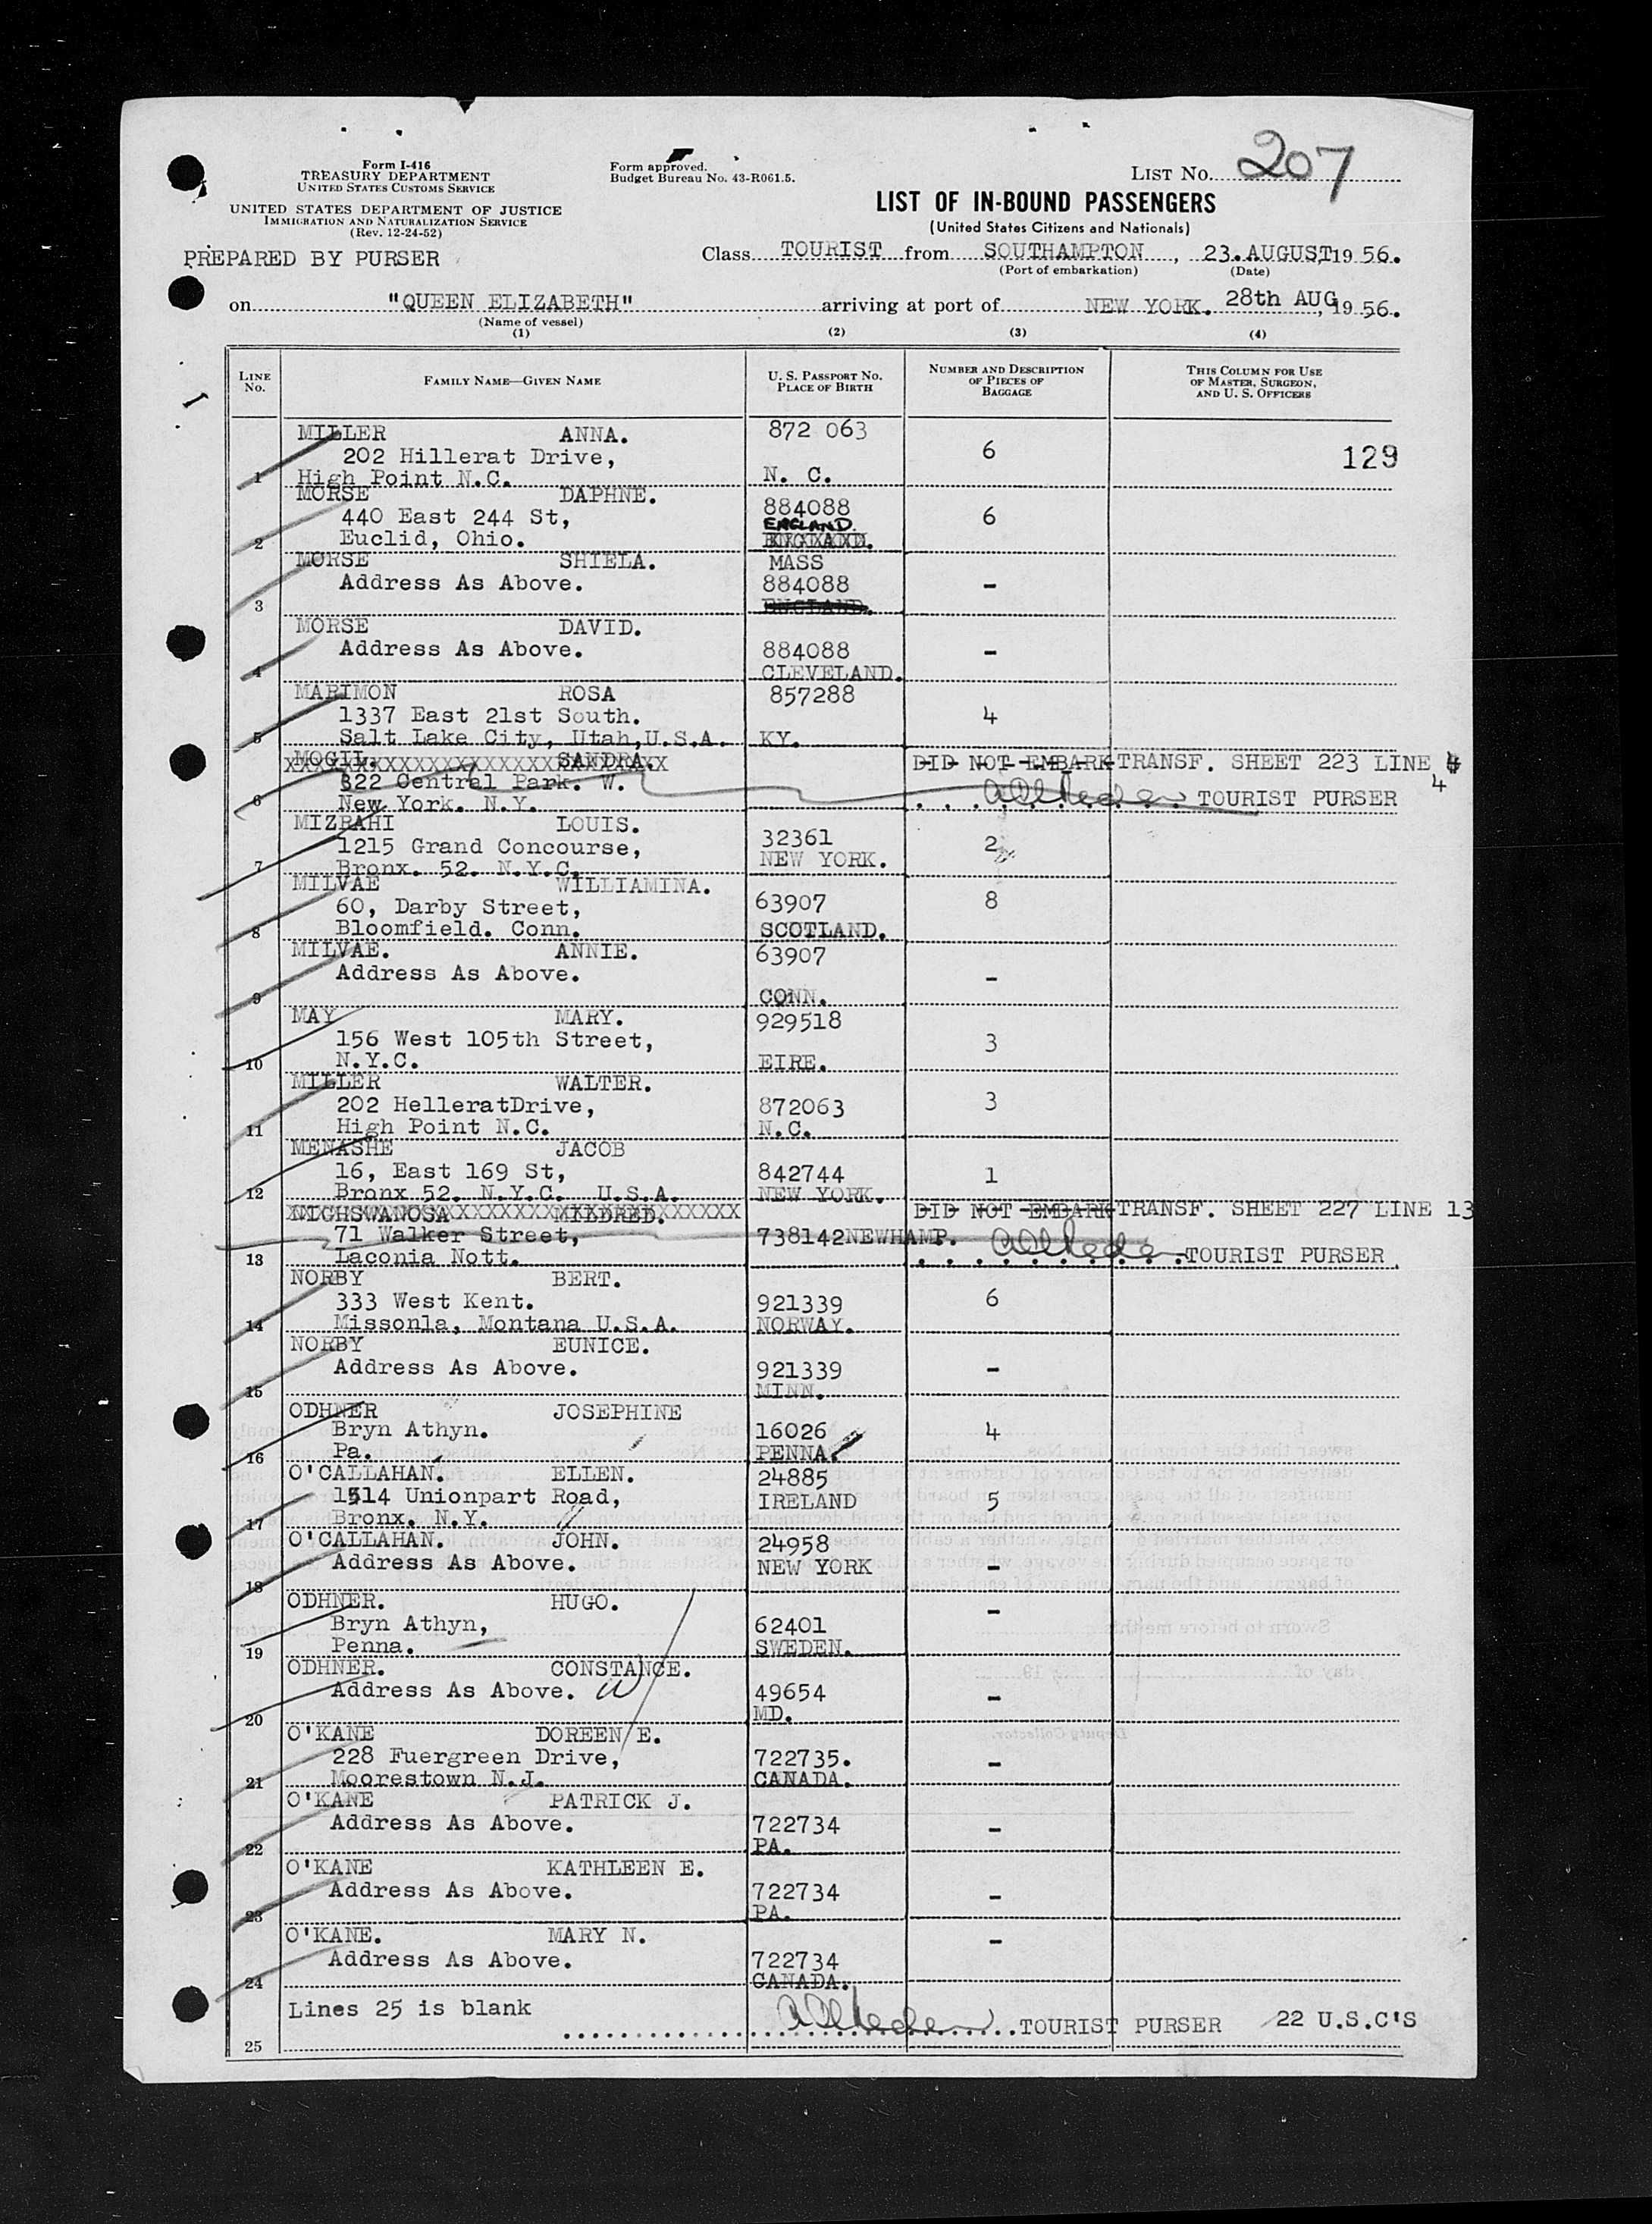 Form I-416
TREASURY DEPARTMENT
UNITED STATES CUSTOMS SERVICE
UNITED STATES DEPARTMENT OF JUSTICE
IMMIGRATION AND NATURALIZATION SERVICE
(Rev. 12-24-52)
PREPARED BY PURSER
Form approved.
Budget Bureau No. 43-R061.5.
LIST No. 207
LIST OF IN-BOUND PASSENGERS
(United States Citizens and Nationals)
Class TOURIST from SOUTHAMPTON, 23.AUGUST, 19 56.
(Port of embarkation) (Date)
on "QUEEN ELIZABETH" arriving at port of NEW YORK. 28th AUG, 19 56.
(Name of vessel)
(1) (2) (3) (4)
LINE No. FAMILY NAME—GIVEN NAME U. S. PASSPORT No. PLACE OF BIRTH NUMBER AND DESCRIPTION OF PIECES OF BAGGAGE THIS COLUMN FOR USE OF MASTER, SURGEON, AND U. S. OFFICERS
MILLER ANNA. 872 063
202 Hillerat Drive, 6 129
1 High Point N.C. N. C.
MORSE DAPHNE. 884088
440 East 244 St, ENGLAND. 6
2 Euclid, Ohio. ENGLAND.
MORSE SHIELA. MASS
Address As Above. 884088 -
3 ENGLAND.
MORSE DAVID.
Address As Above. 884088 -
4 CLEVELAND.
MARIMON ROSA 857288
1337 East 21st South. 4
5 Salt Lake City, Utah,U.S.A. KY.
MOGIL. SANDRA. DID NOT EMBARK TRANSF. SHEET 223 LINE 4
322 Central Park. W. 4
6 New York. N.Y. TOURIST PURSER
MIZRAHI LOUIS.
1215 Grand Concourse, 32361 2
7 Bronx. 52. N.Y.C. NEW YORK.
MILVAE WILLIAMINA.
60, Darby Street, 63907 8
8 Bloomfield. Conn. SCOTLAND.
MILVAE. ANNIE. 63907
Address As Above. -
9 CONN.
MAY MARY. 929518
156 West 105th Street, 3
10 N.Y.C. EIRE.
MILLER WALTER.
202 HelleratDrive, 872063 3
11 High Point N.C. N.C.
MENASHE JACOB
16, East 169 St, 842744 1
12 Bronx 52. N.Y.C. U.S.A. NEW YORK.
NICHSWANOSA MILDRED. DID NOT EMBARK TRANSF. SHEET 227 LINE 13
71 Walker Street, 738142NEWHAMP.
13 Laconia Nott. TOURIST PURSER
NORBY BERT.
333 West Kent. 921339 6
14 Missonla, Montana U.S.A. NORWAY.
NORBY EUNICE.
Address As Above. 921339 -
15 MINN.
ODHNER JOSEPHINE
Bryn Athyn. 16026 4
16 Pa. PENNA.
O'CALLAHAN. ELLEN. 24885
1514 Unionpart Road, IRELAND 5
17 Bronx. N.Y.
O'CALLAHAN. JOHN. 24958
Address As Above. NEW YORK -
18
ODHNER. HUGO. -
Bryn Athyn, 62401
19 Penna. SWEDEN.
ODHNER. CONSTANCE.
Address As Above. W 49654 -
20 MD.
O'KANE DOREEN E.
228 Fuergreen Drive, 722735. -
21 Moorestown N.J. CANADA.
O'KANE PATRICK J.
Address As Above. 722734 -
22 PA.
O'KANE KATHLEEN E.
Address As Above. 722734 -
23 PA.
O'KANE. MARY N. -
Address As Above. 722734
24 CANADA.
Lines 25 is blank
TOURIST PURSER 22 U.S.C'S
25